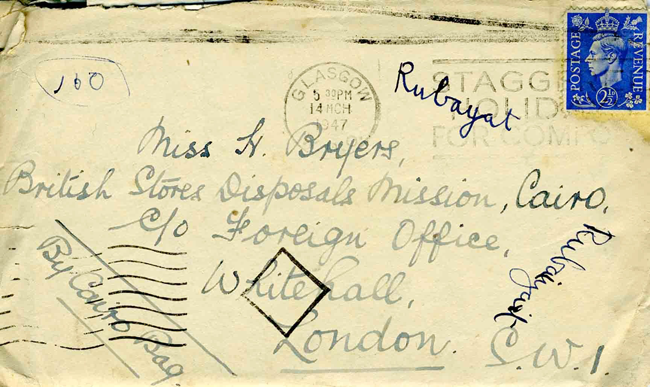 160
POSTAGE REVENUE
2½
GLASGOW
5 30 PM
14 MCH
1947
STAGG
HOLID
FOR COMFO
Rubayat
Miss H. Bryers,
British Stores Disposals Mission, Cairo,
C/o Foreign Office,
Whitehall,
London. S.W.1.
By Cairo Bag
Rubaiyait